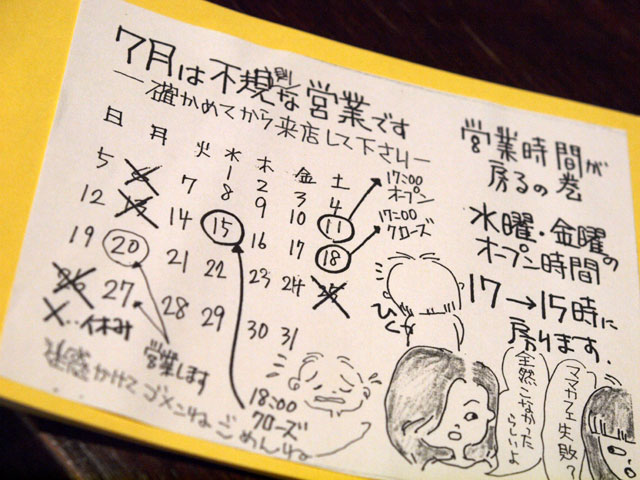 7月は不規則な営業です
―確かめてから来店して下さい―
日 月 火 水 木 金 土
1 2 3 4
5 6 7 8 9 10 11
12 13 14 15 16 17 18
19 20 21 22 23 24 25
26 27 28 29 30 31
17:00
オープン
17:00
クローズ
X…休み
営業します
18:00
クローズ
迷惑かけて ゴメンね ごめんね
営業時間が
戻るの巻
水曜・金曜の
オープン時間
17→15時に
戻ります.
ママカフェ失敗?
全然こなかった
らしいよ